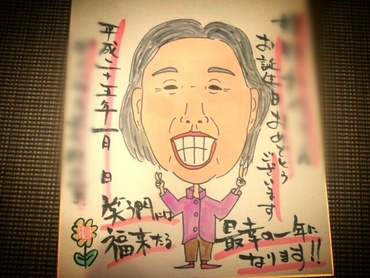 お誕生日おめでとう
ございます
最幸の一年に
なります!!
笑う門には
福来たる
平成二十五年一月 日